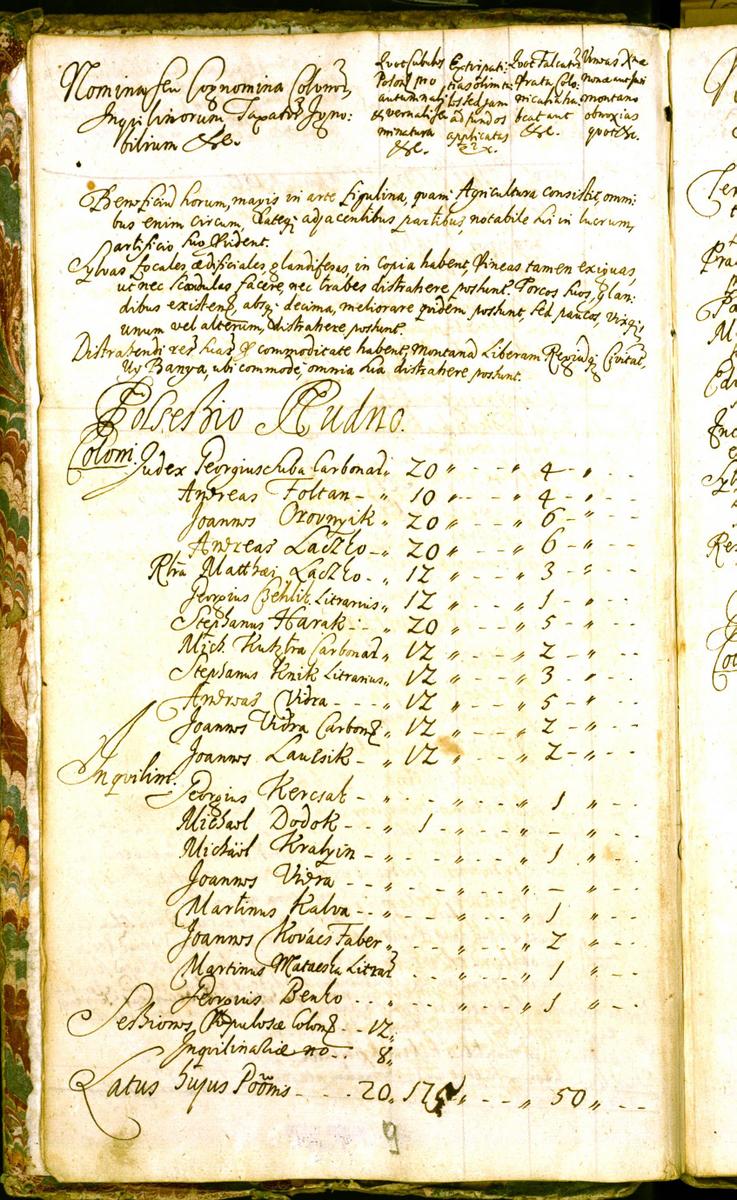 Nomina seu Cognomina Colonor,
Inquilinorum Taxator Igno:
bilium &c.
Quot Cubulos
Poson pro
autumnali
& vernali se
minatura
&c.
Extirpati:
tias olim ti:
les sed jam
ad fundos
applicatas
Quot Falcator
Prata Colo:
nicalia ha
beat aut
&c.
Vineas
Nonae aut juri
montano
obnoxias
quot &c.
Beneficium horum, magis in arte Figulina, quam Agricultura consistit, omni:
bus enim circum, Lateq adjacentibus partibus, notabile hi in lucrum,
artificio suo
Sylvas Locales aedificiales glandiferas, in copia habent, Pineas tamen exiguas,
ut nec Scandulas facere, nec trabes distrahere possunt. Porcos suos, glan:
dibus existen, absq decima, meliorare quidem possunt, sed paucos, vix
unum vel alterum, distrahere possunt.
Distrahendi res suas commoditate habent, Montana Liberam Regiamq Civitat,
Uy Banya, ubi commode, omnia sua distrahere possunt.
Possessio Rudno.
Coloni. Judex Georgius Suba Carbonari „ 20 „ - - - „ 4 - „ - -
Andreas Foltan - „ 10 „ - - - „ 4 - „ - -
Joannes Orovnyik „ 20 „ - - - „ 6 - „ - -
Andreas Laczko - „ 20 „ - - - „ 6 - „ - -
Rta Matthaei Laczko - „ 12 „ - - - „ 3 - „ - -
Georgius Litrarius „ 12 „ - - - „ 1 - „ - -
Stephanus Harak - - „ 20 „ - - - „ 5 - „ - -
Mich Carbonar „ 12 „ - - - „ 2 - „ - -
Stephanus Knik Litrarius „ 12 „ - - - „ 3 - „ - -
Andreas Vidra - - - - „ 12 „ - - - „ 5 - „ - -
Joannes Vidra Carbon „ 12 „ - - - „ 2 - „ - -
Joannes Laucsik - „ 12 „ - - - „ 2 - „ - -
Inquilini.
Georgius Kercsat - „ - - - „ - - - „ 1 „ - -
Michael Dodok - - „ 1 - „ - - - „ - „ - -
Michael Kralyin - - „ - - - „ - - „ 1 „ - -
Joannes Vidra - - - „ - - - „ - - „ - „ - -
Martinus Kalva - - „ - - - „ - - „ 1 „ - -
Joannes Kovács Faber „ - - - „ - - „ 2 „ - -
Martinus Litrar - - - „ - - „ 1 „ - -
Georgius Benko - - „ - - - „ - - „ 1 „ - -
Sessiones Populosae Colon - - 12 „
Inquilinaliae no - - 8 „
Latus hujus Poss̃nis - - - - 20 „ 175 „ - - - „ 50 „ - -
9